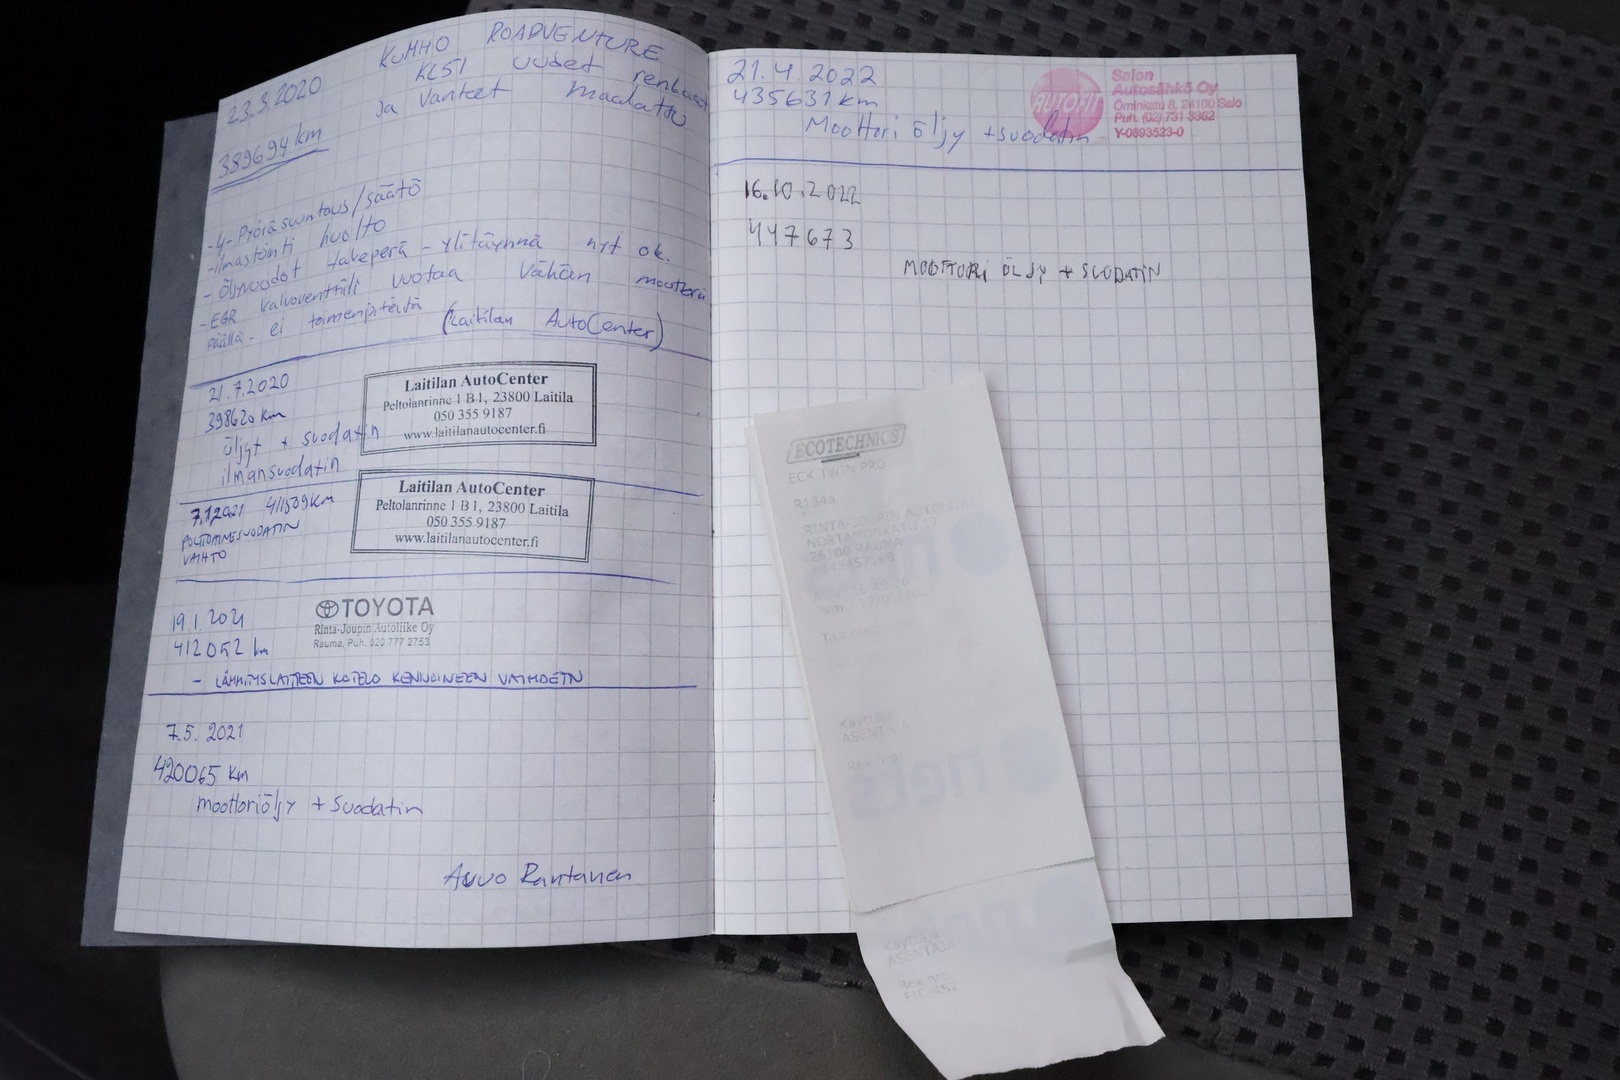 23.3.2020 KUMHO ROADVENTURE
KL51 uudet renkaat
389694 km ja vanteet maalattu
-4-Pyöräsuuntaus/säätö
-ilmastointi huolto
-Öljyvuodot takeperä - ylitäynnä nyt ok.
-EGR kalvoventtiili vuotaa vähän moottorin
päällä - ei toimenpiteitä (Laitilan AutoCenter)
21.7.2020
398620 km
öljyt + suodatin
ilmansuodatin
Laitilan AutoCenter
Peltolanrinne 1 B1, 23800 Laitila
050 355 9187
www.laitilanautocenter.fi
7.1.2021 411509 KM
POLTTOAINESUODATIN
VAIHTO
Laitilan AutoCenter
Peltolanrinne 1 B1, 23800 Laitila
050 355 9187
www.laitilanautocenter.fi
19.1.2021
412052 km
TOYOTA
Rinta-Joupin Autoliike Oy
Rauma, Puh. 020 777 2753
- LÄMMITYSLAITTEEN KOTELO KENNOINEEN VAIHDETTU
7.5. 2021
420065 km
moottoriöljy + suodatin
Arvo Rantanen
21.4 2022
435631 km
Moottori öljy + suodatin
AUTOFIT
Salon
Autosähkö Oy
Örninkatu 8, 24100 Salo
Puh. (02) 731 3362
Y-0893523-0
16.10.2022
447673
MOOTTORI ÖLJY + SUODATIN
ECOTECHNICS
ECK TWIN PRO
R134a
RINTA-JOUPIN AUTOLIIKE
NORTAMONKATU 17
26100 RAUMA
nets
Käyttäjä
ASENTAJA
Rek.nro
nets
Käyttäjä
ASENTAJA
Rek.nro